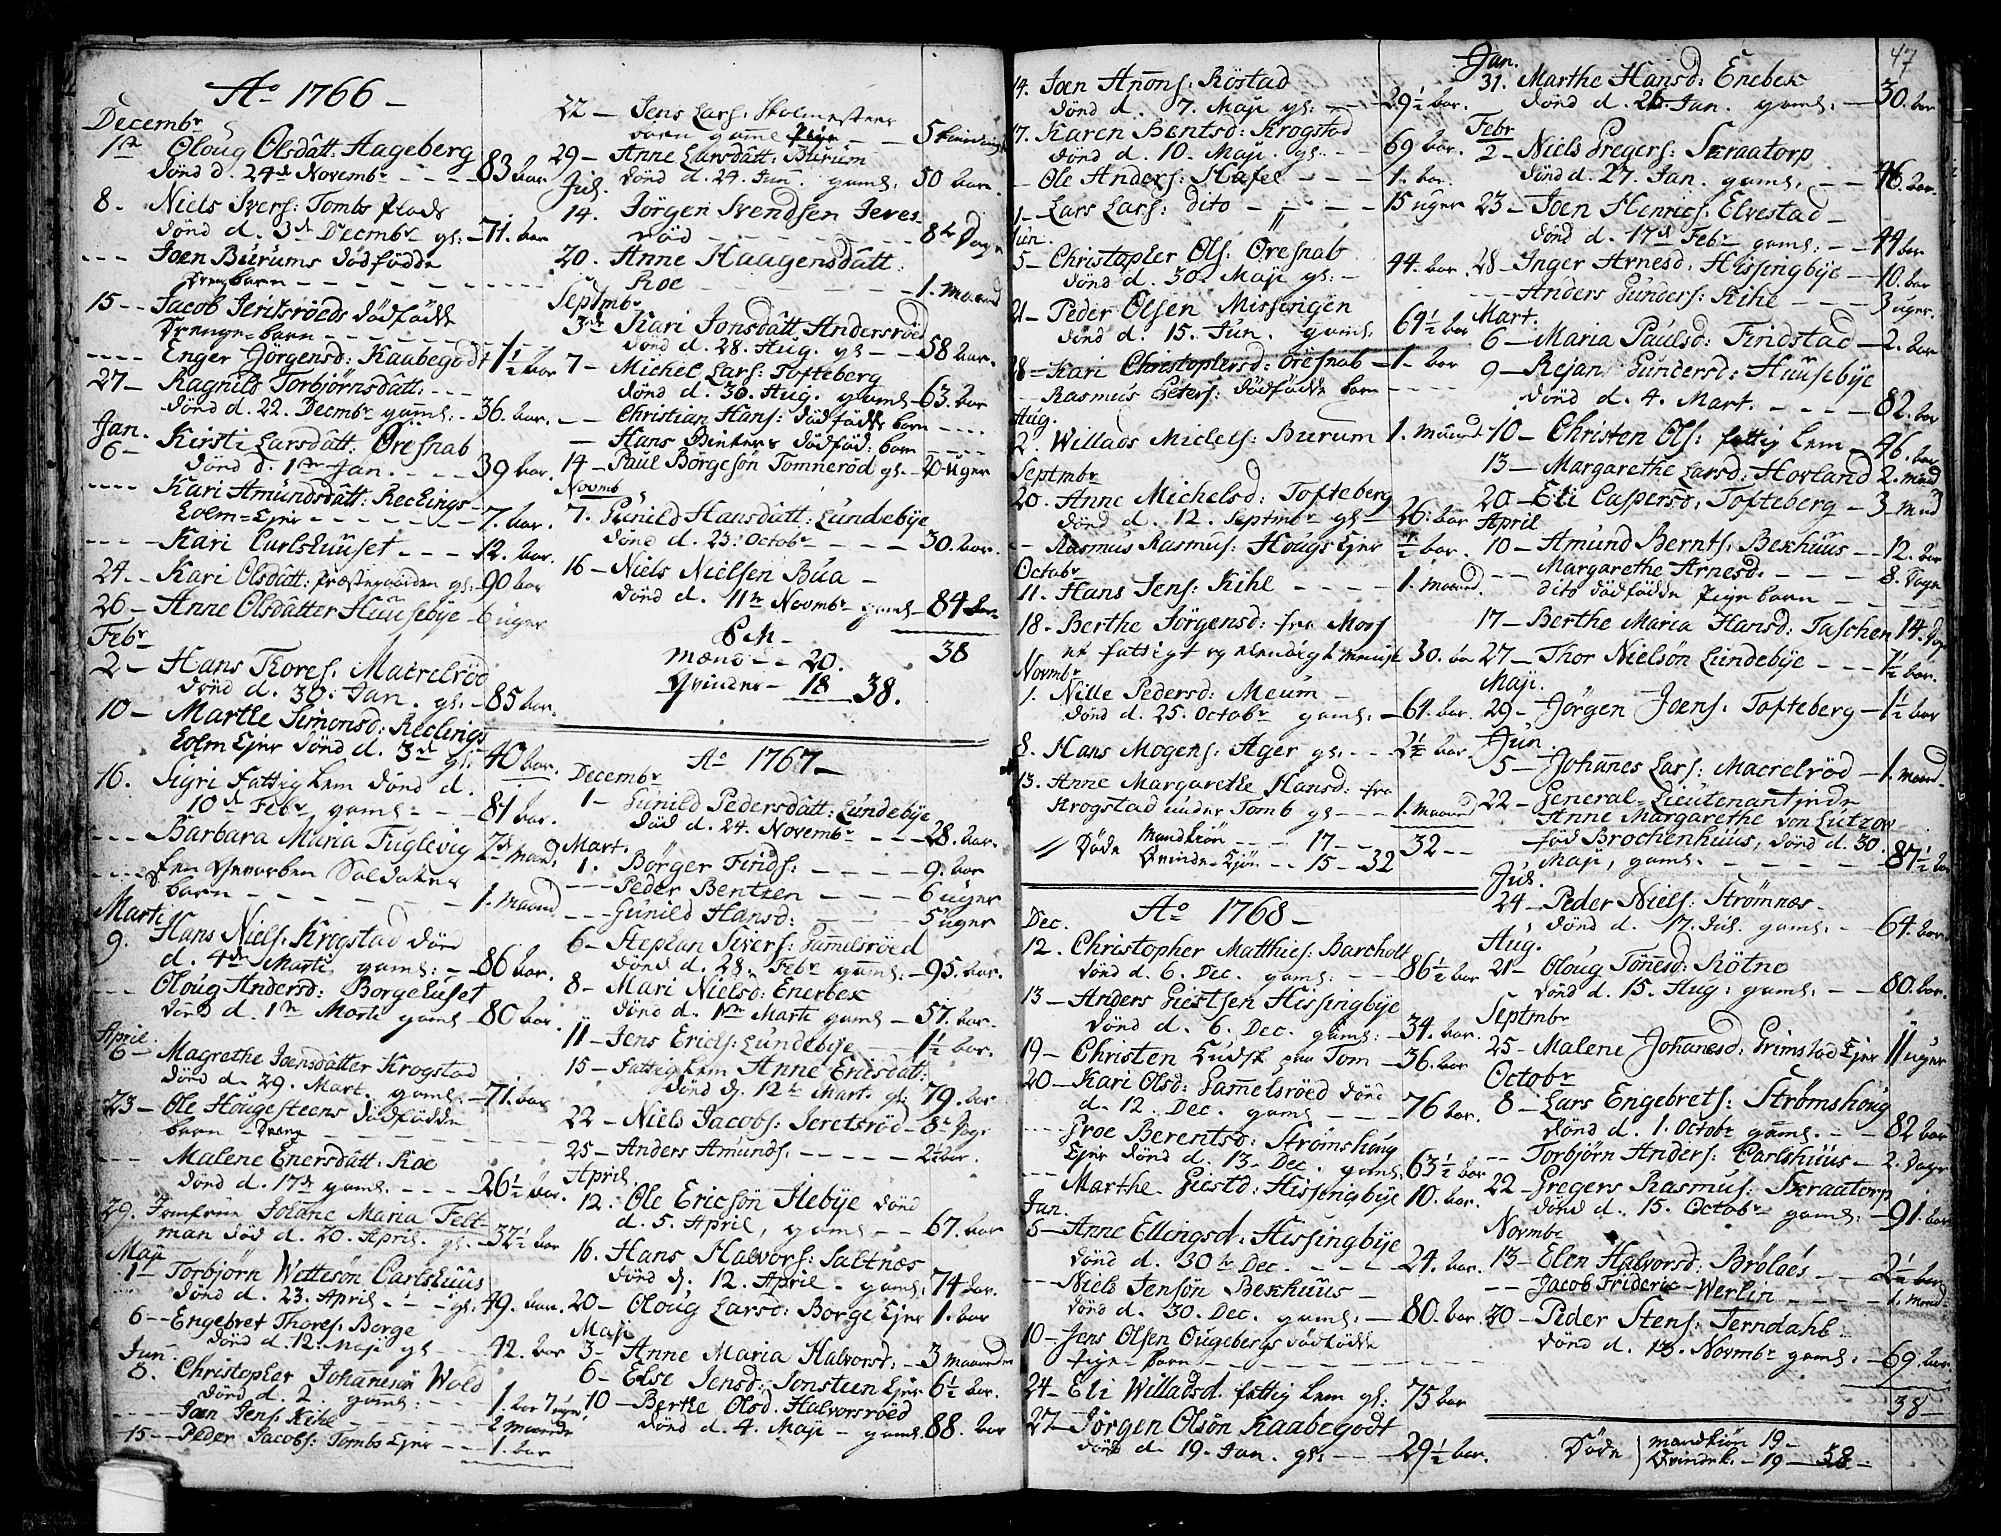 Ao 1766 –
Decembr
1te Oloug Olsdátt: Hageberg
dönd d. 24de Novembr - - - - 83 aar
8. Niels Ivers: Tombs
dönd d. 3de Decembr gl: - 71. aar
- - - Joen Burums dödfödde
Drengbarn - - - - - - - -
15 - - Jacob dödfödde
Drenge=barn - - - - - - -
- - - - Enger Jörgensd: Kaabegodt 1 1/2 aar
27 - Ragnild Torbjörnsdátt: - - -
dönd d. 22. Decmbr gaml: - 36. aar.
Jan. Kirsti Larsdátt: Öresnab
6 - dönd d. 1te Jan. - - - - 39 aar.
- - - - Kari Amundsdátt: Reclings
holm=Ejer - - - - - - - 7. aar.
- - - - Kari Carlshuuset - - - 12. aar.
24. - Kari Olsdátt: Præstegaarden gl: 90 aar
26 - Anne Olsdátter Huusebÿe - 6 uger
Febr
2 - Hans Thores: Macrelröd
dönd d. 30. Jan. gl: - 85 aar.
10 - Marthe Simonsd: Reclings
holm Ejer dönd d. 3de gl: 40 aar.
16. Sigri fattig lem dönd d.
10de Febr gaml: - - 81 aar.
- - - Barbara Maria Fuglevig 7 maand.
- - - Een Soldates
barn - - - - - - - 1. maand
Marti
9. Hans Niels: Krogstad dönd
d. 4de Marti gaml: - 86 aar.
- - - Oloug Andersd: Borgehuset
dönd d. 1te Marti gaml 80 aar.
April.
6 - Magrethe Joensdátter Krogstad
dönd d. 29. Mart. gaml: - 71. aar
23 - Ole Hougesteens dödfödde
barn - Dreng
- - - Malene Enersdátt: Roe
dönd d. 17de gaml. - - - 26 1/2 aar.
29. Jomfrue Johane Maria Felt-
man död d. 20. April. gl: - 37 1/2 aar
Maji
1 - Torbjörn Wettesön Carlshuus
dönd d. 23. April - - gl: 49. aar.
6 - Engebret Thores: Borge
dönd d. 12. Maji gl - - - 42. aar
Jun.
8. Christopher Johannesön Wold
dönd d. 2. gaml: - - 1 aar
- - - - Joen Jens: Kihl - - - - 2 maaneder
15 - - Peder Jacobs: Tombs Ejer - - 1 aar
22 - Jens Lars: Skolmesters
barn gamle - - 5
29 - Anne Larsdátt: Burum
Jul. dönd d. 24. Jun. gaml: 50 aar.
14. Jörgen Svendsen
död - - - - - - - 8te Dage
20. Anne Haagensdátt:
Roe - - - - - - - 1. Maaned
Septmbr
3de Kari Jonsdátt Andersröed
dönd d. 28. Aug. gl - - 58 aar.
7 - Michel Lars: Tofteberg
dönd d. 30. Aug. gaml - 63. aar
- - Christian Hans: dödfödde barn - - - -
- Hans dödföd: barn - - - -
14 - Paul Börgesön Tomneröd gl. - 20 uger
Novmb
7. Gunild Hansdátt: Lundebÿe
dönd d. 23. Octobr - - - - 30. aar.
16 - Niels Nielsen Bua -
dönd d. 11te Novmbr gaml - 84 aar.
38
Mænd - - 20.
Qvinder - 18 38.
Ao 1767 –
Decembr
1 - Gunild Pedersdátt: Lundebÿe
död d. 24. Novembr - - 28. aar.
Mart.
1. Börger Finds: - - - - - 9. aar
- - - Peder Bentzen - - - - - 6 uger
- - - Gunild Hansd: - - - - 5 uger
6 - Stephan Sivers: Gamelsröed
dönd d. 28. Febr gaml: - 95. aar.
8 - Mari Nielsd: Enerbex
dönd d. 1te Marti gaml: - 57. aar.
11 - Jens Erichs: Lundebÿe - - 1 1/2 aar.
15 - fattig lem Anne Ericsdát:
dönd d. 12te Mart. gl: 79. aar
22 - Niels Jacobs: Jeretsröd - 8te Dage
25 - Anders Amunds. - - - - - 2 1/2 aar.
April.
12. Ole Ericsön Ilebÿe dönd
d. 5. April, gaml - - 67. aar.
16. Hans Halvors: Saltnæs
dönd d. 12. April - gaml: 74 aar.
20 - Oloug Larsd: Borge Ejer 1. aar
Maji
3 - Anne Maria Halvorsd: - 3 maaneder
6 - Else Jensd: Jonsteen Ejer 6 1/2 aar.
10 - Berthe Olsd. Halvorsröed
dönd d. 4. Maji - gaml. 88. aar
47
14. Joen Anons: Röstad
dönd d. 7. Maji gl: - - - 29 1/2 aar.
17. Karen Bentsd: Krogstad
dönd d. 10. Maji. gl: - - - 69 aar.
- Ole Anders: Hafel - - - 1. aar.
1 - Lars Lars: dito - - - - 15 uger
Jun.
5 - Christopher Ols: Öresnab
dönd d. 30. Maji gl: - 44. aar.
21 - Peder Olsen Missingen
dönd d. 15. Jun. gaml. 64 1/2 aar
28 - Kari Christophersd: Öresnab - 1 - aar
- Rasmus Peters: dödfödde barn - - - -
Aug.
2. Willads Michels: Burum 1. maaned
Septmbr
20. Anne Michelsd: Tofteberg
dönd d. 12. Septmbr gl - 26: aar
- Rasmus Rasmus: Hougs Ejer 1/2 aar.
Octobr
11. Hans Jens: Kihl - - - - 1. maaned.
18. Berthe Jörgensd: fra Moss
et fattigt og elendigt Menniske 30. aar
Novmbr
1. Nille Pedersd: Meum -
dönd d. 25. Octobr gaml: - 61. aar.
8. Hans Mogens: Ager gl: - - - 2 1/2 aar
13. Anne Margarethe Hansd: fra
Krogstad under Tomb gl - - - 1. maaned
Döde Mandkiön - - - - 17 - - 32 - -
Qvinde-Kjön - - 15 - 32
Ao 1768 –
Dec.
12. Christopher Matthies: Barcholt
dönd d. 6. Dec. gaml: - - 86 1/2 aar
13 - Anders Giertsen Hissingbÿe
dönd d. 6. Dec. gaml: - 34. aar.
19 - Christen Tom - 36. aar
20 - Kari Olsd: Gamelsröed dönd
d. 12. Dec. gaml - - - 76 aar.
- - - Groe Berentsd: Strömshoug
Ejer dönd d. 13. Dec. gaml. 63 1/2 aar
- - Marthe Giestd: Hissingbÿe 10. aar.
Jan.
5 - Anne Ellingsd: Hissingbÿe
dönd d. 30te Dec. - - - 24. aar.
- - - Niels Jensön Bexhuus -
dönd d. 30. Dec. gaml: - 80. aar.
10 - Jens Olsen Ougebergs dödfödde
Pige=barn - - - - - - - - -
24 - Eli Willadsd. fattig lem gl: 75 aar
27 - Jörgen Olsön Kaabegodt
dönd d. 19. Jan. gl: - - 29 1/2 aar.
Jan.
31. Marthe Hansd: Enebex
dönd d. 26. Jan. gaml: - 30. aar
Febr
2 - Niels Gregers: Skraatorp
dönd d. 27. Jan. gaml. - - 46. aar.
23 - Joen Henrics: Elvestad -
dönd d. 17de Febr gaml: - - 44 aar
28 - Inger Arnesd: Hissingbÿe - 10. aar
- - - Anders Gunders: Kihl - - - - 3 uger.
Mart.
6 - Maria Paulsd: Findstad - 2. aar
9 - Rejan Gundersd: Huusebÿe
dönd d. 4. Mart. - - - - 82. aar
10 - Christen Ols: fattig lem - 46. aar
13 - Margarethe Larsd: Hovland 2. maand
20 - Eli Caspersd: Tofteberg - 3 Mand
April
10 - Amund Bernts: Bexhuus - - 12. aar
- - Margarethe Arnesd. - - - - 8. Dage
dito dödfödde Pige barn - - - - - -
17 - Berthe Maria Hansd: Taschen 14. Dage
27 - Thor Nielsön Lundebÿe - - - 7 1/2 aar.
Maji.
29 - Jörgen Joens: Tofteberg - 1 1/2 aar
Jun.
5 - Johanes Lars: Macrelröd - 1. maand.
22 - General=Lieutenantjnde
Anne Margarethe von Lützow
föd Brochenhuus, dönd d. 30.
Maji, gaml. - - - - - 87 1/2 aar
Jul.
24 - Peder Niels: Strömnæs -
dönd d. 17. Jul. gaml: - 64. aar.
Aug.
21 - Oloug Tönnesd: Rötne
dönd d. 15. Aug: gaml: - - 80. aar.
Septmbr
25 - Malene Johanesd: Grimstad Ejer 11 uger
Octobr
8 - Lars Engebrets: Strömshoug
dönd d. 1. Octobr gaml. - - 82 aar
- - Torbjörn Anders: Carlshuus - 2. Dage
22 - Gregers Rasmus: Skraatorp
dönd d. 15. Octobr gaml: - 91. aar
Novmbr
13 - Elen Halvorsd: Brölaes - - 2 1/2 aar
- - Jacob Frideric Werlin - - - - 1. maand
20 - Peder Stens: Ferndahl
dönd d. 13. Novmbr gaml: - 69. aar.
38 -
Döde mandkiön 19 -
Qvindek. - 19 - 38 -